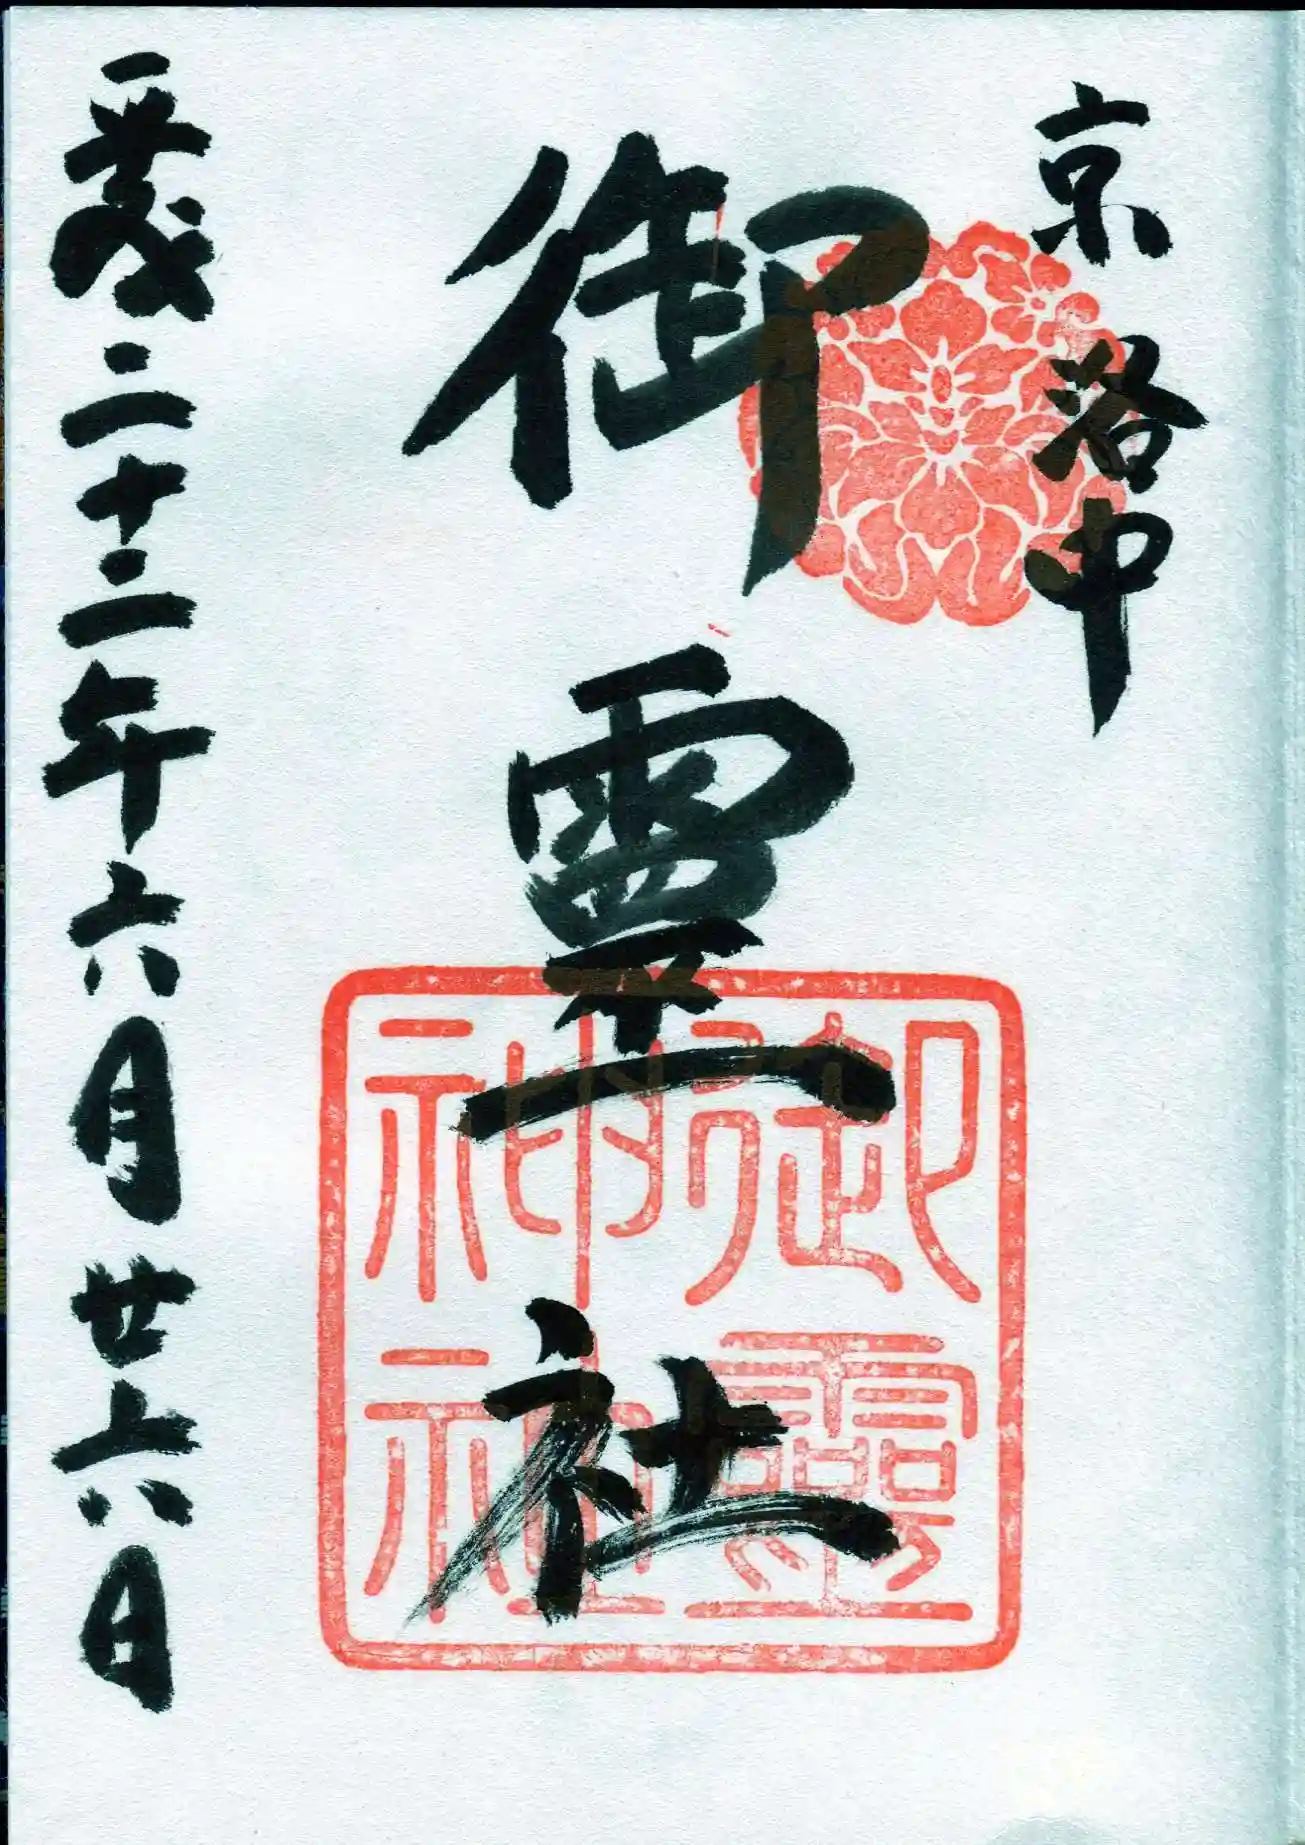 京洛中
御霊社
平成二十二年六月廿六日
御靈神社